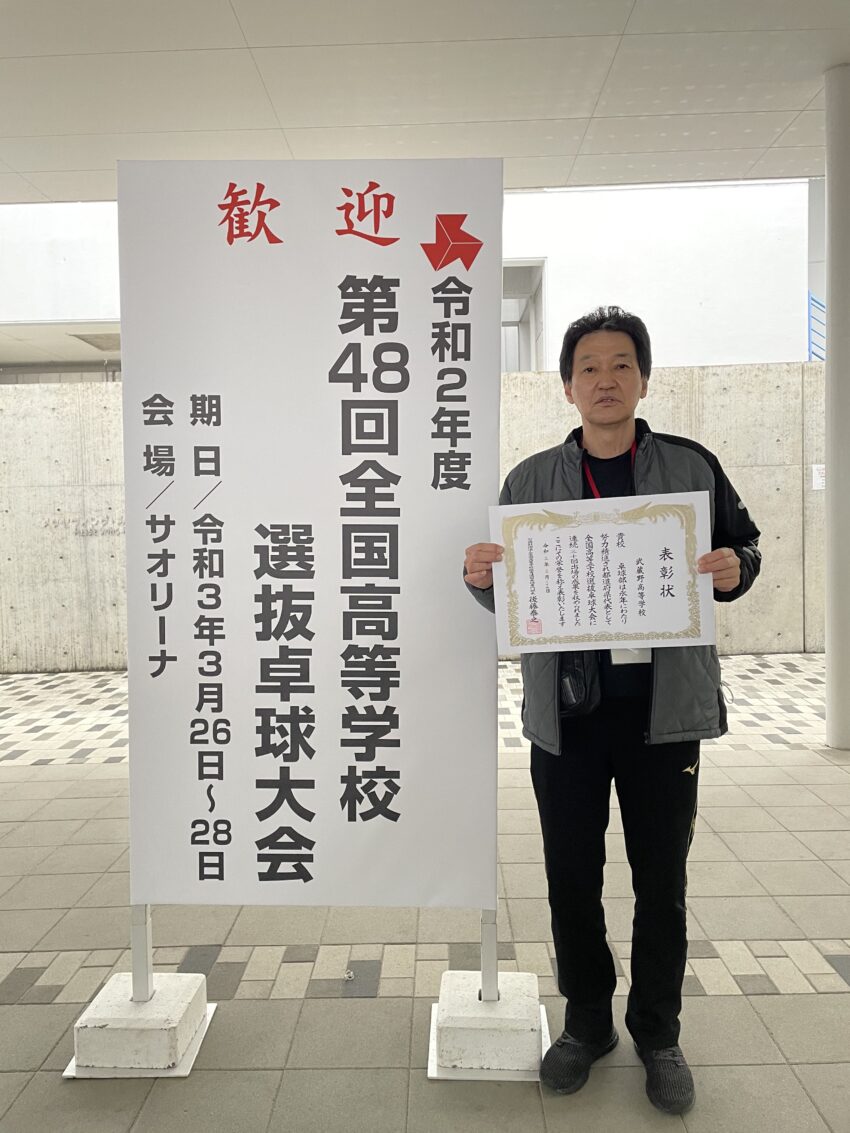 歓迎
令和2年度
第48回全国高等学校
選抜卓球大会
期日/令和3年3月26日~28日
会場/サオリーナ
表彰状
武蔵野高等学校
貴校 卓球部は永年にわたり
努力精進され都道府県代表として
全国高等学校選抜卓球大会に
連続二十回出場の成果を収められました
ここにその栄誉を称え表彰いたします
後藤泰之